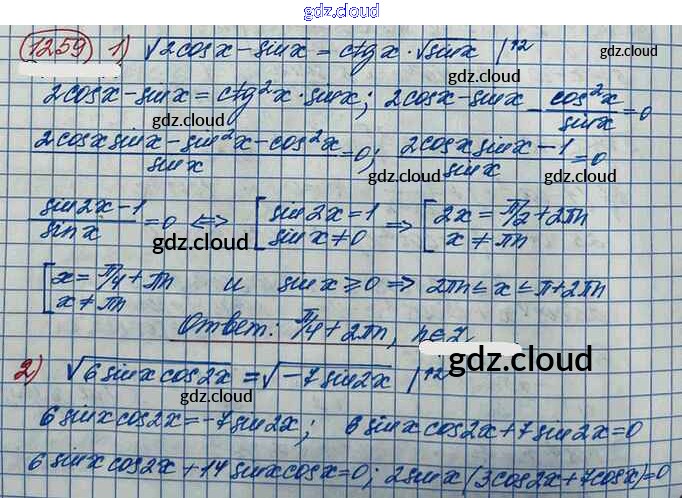 gdz.cloud
1259 1) √2cosx - sinx = ctgx · √sinx |↑2
gdz.cloud
gdz.cloud
2cosx - sinx = ctg²x · sinx; 2cosx - sinx - cos²x/sinx = 0
gdz.cloud
gdz.cloud
(2cosxsinx - sin²x - cos²x)/sinx = 0; (2cosxsinx - 1)/sinx = 0
gdz.cloud
gdz.cloud
(sin2x - 1)/sinx = 0 <=> [sin2x = 1 sinx ≠ 0 => [2x = π/2 + 2πn x ≠ πn
gdz.cloud
gdz.cloud
[x = π/4 + πn x ≠ πn и sinx ≥ 0 => 2πn ≤ x ≤ π + 2πn
Ответ: π/4 + 2πn, n∈Z
gdz.cloud
2) √6sinxcos2x = √-7sin2x |↑2
6sinxcos2x = -7sin2x; 6sinxcos2x + 7sin2x = 0
6sinxcos2x + 14sinxcosx = 0; 2sinx(3cos2x + 7cosx) = 0